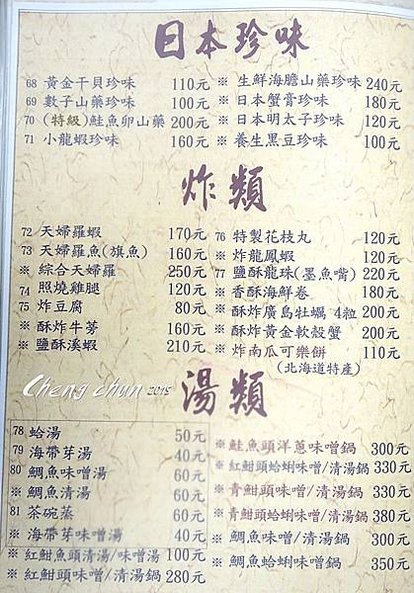 日本珍味
68 黃金干貝珍味 110元
69 數子山藥珍味 100元
70 (特級)鮭魚卵山藥 200元
71 小龍蝦珍味 160元
※ 生鮮海膽山藥珍味 240元
※ 日本蟹膏珍味 180元
※ 日本明太子珍味 120元
※ 養生黑豆珍味 100元
炸類
72 天婦羅蝦 170元
73 天婦羅魚(旗魚) 160元
※ 綜合天婦羅 250元
74 照燒雞腿 120元
75 炸豆腐 80元
※ 酥炸牛蒡 160元
※ 鹽酥溪蝦 210元
76 特製花枝丸 120元
※ 炸龍鳳蝦 120元
77 鹽酥龍珠(墨魚嘴) 220元
※ 香酥海鮮卷 180元
※ 酥炸廣島牡蠣 4粒 200元
※ 酥炸黃金軟殼蟹 200元
※ 炸南瓜可樂餅 110元
(北海道特產)
Cheng chun 2015
湯類
78 蛤湯 50元
79 海帶芽湯 40元
80 鯛魚味噌湯 60元
※ 鯛魚清湯 60元
81 茶碗蒸 60元
※ 海帶芽味噌湯 40元
※ 紅魽魚頭清湯/味噌湯 100元
※ 紅魽頭味噌/清湯鍋 280元
※ 鮭魚頭洋蔥味噌鍋 300元
※ 紅魽頭蛤蜊味噌/清湯鍋 330元
※ 青魽頭味噌/清湯鍋 330元
※ 青魽頭蛤蜊味噌/清湯鍋 380元
※ 鯛魚味噌/清湯鍋 300元
※ 鯛魚蛤蜊味噌鍋 350元